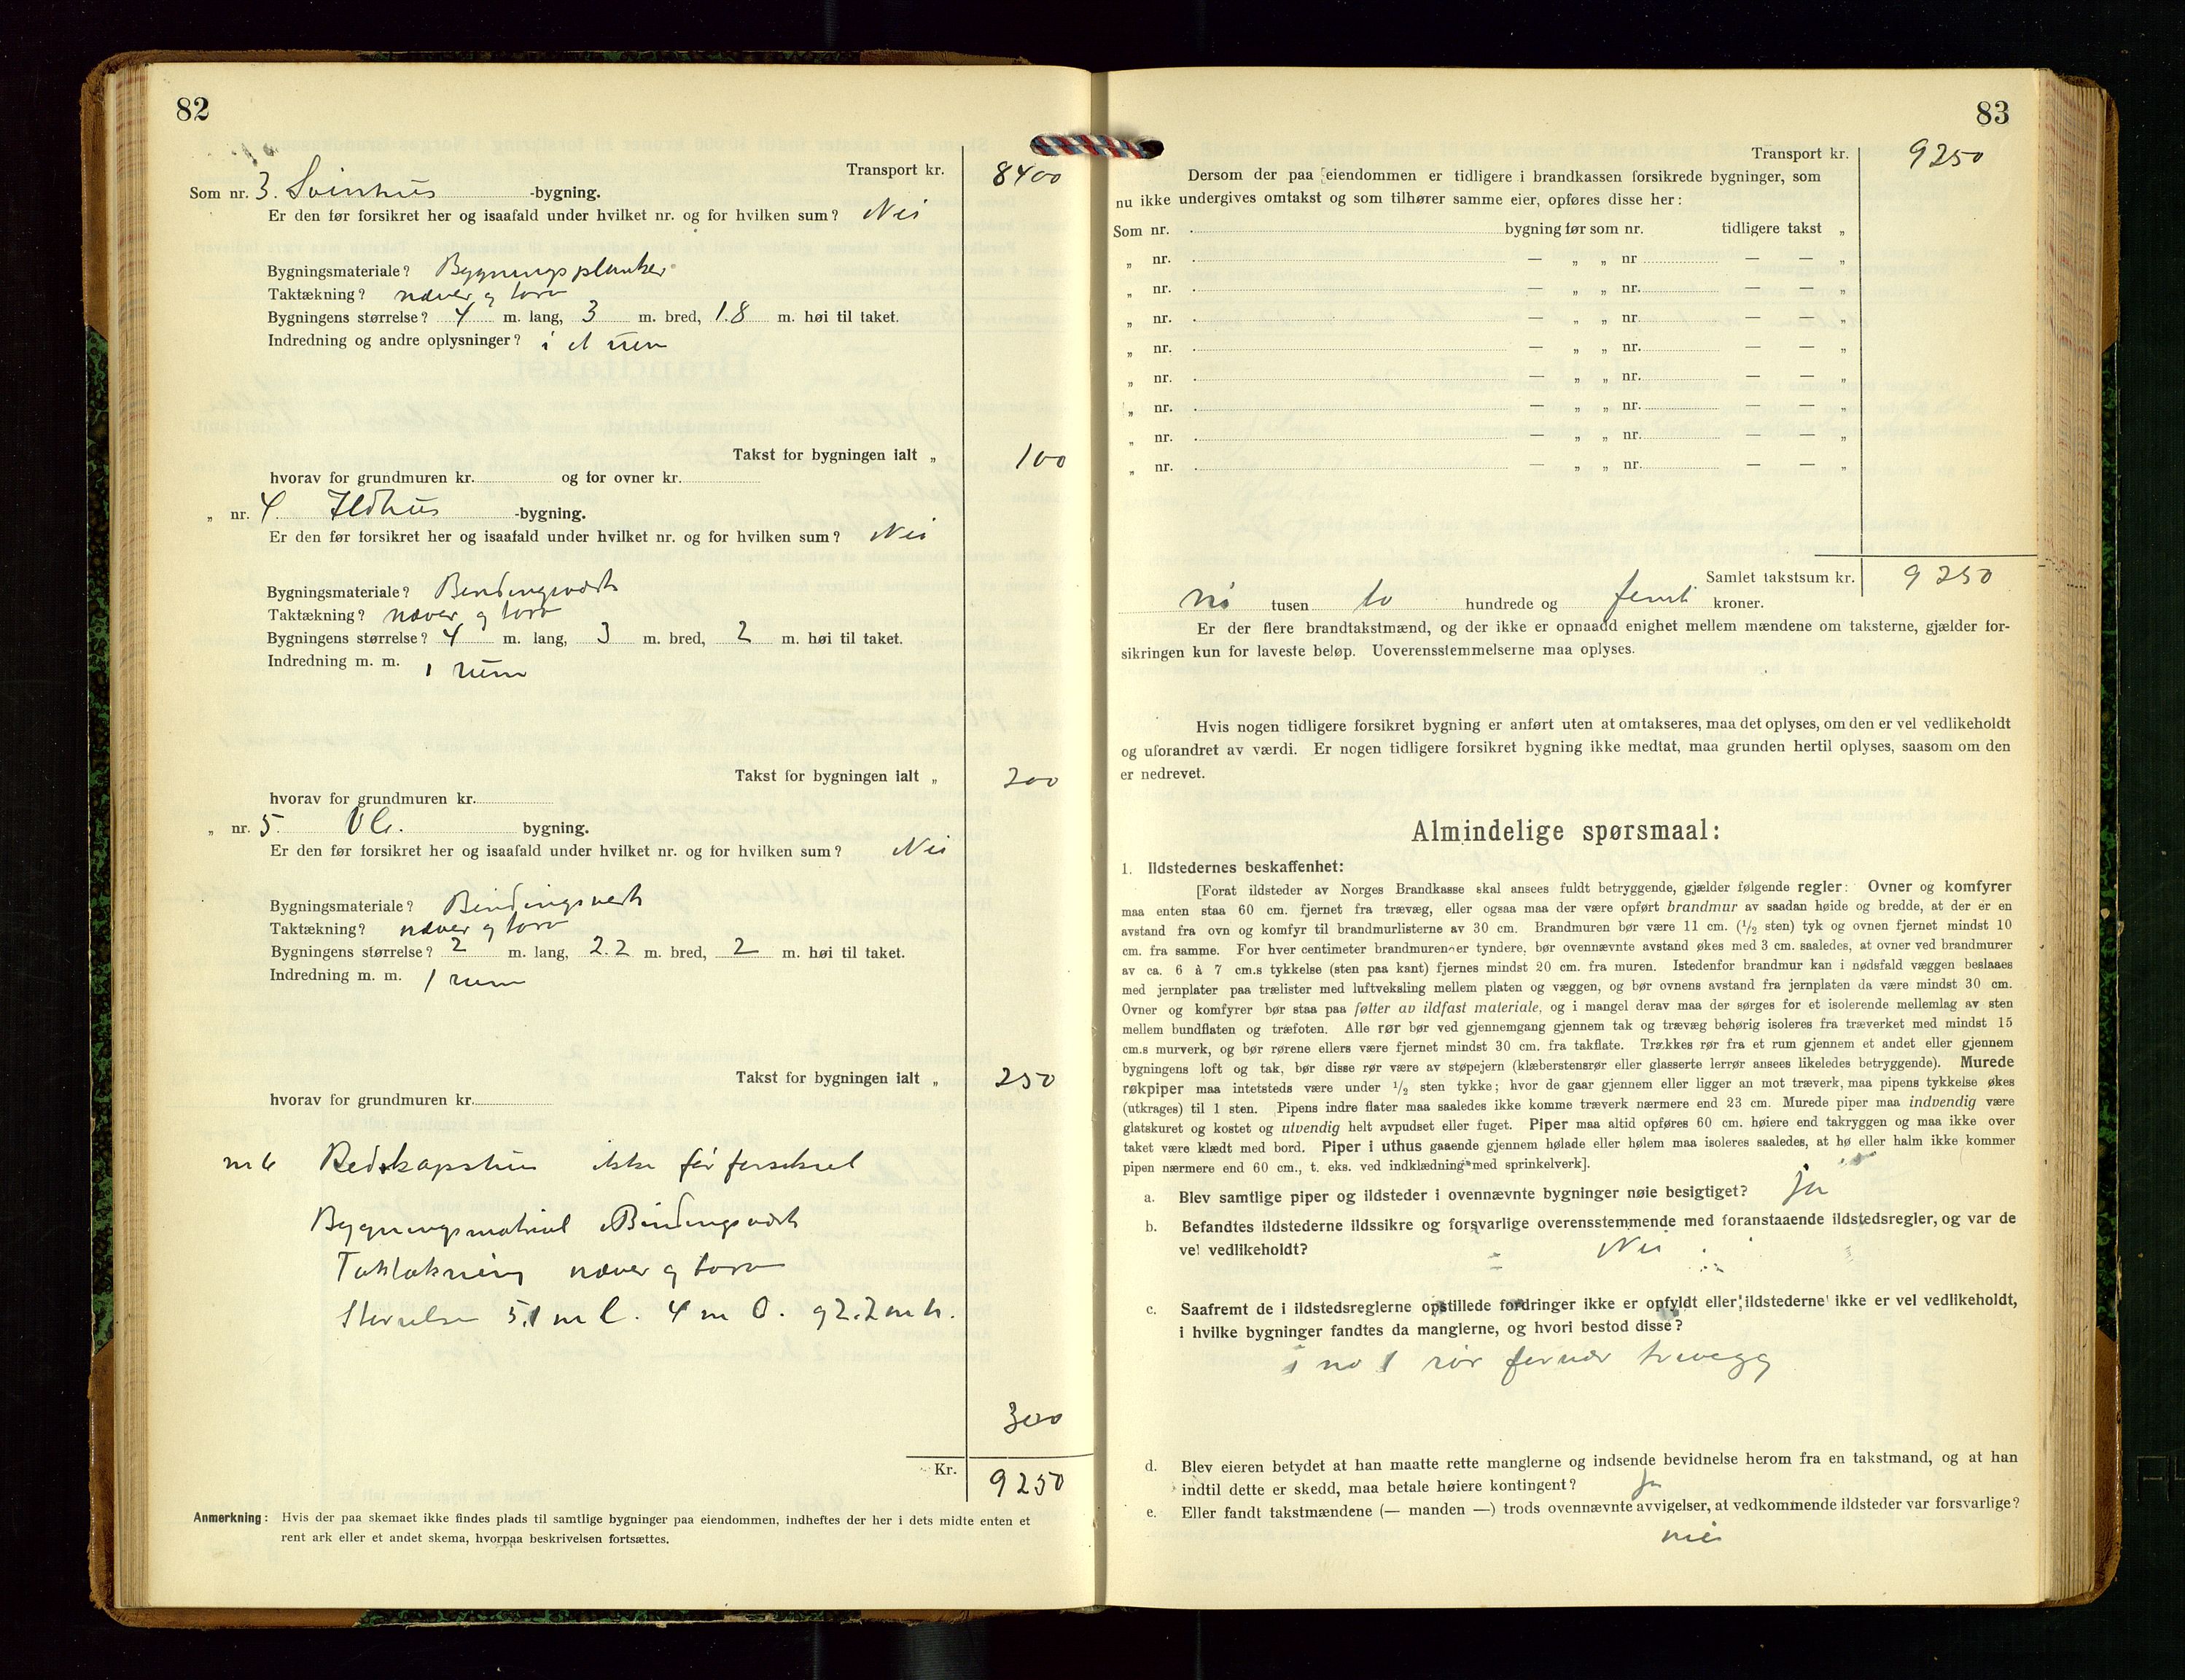 82
Transport kr. 8400
Som nr. 3. Svinhus -bygning.
Er den før forsikret her og isaafald under hvilket nr. og for hvilken sum? Nei
Bygningsmateriale? Bygningsplanker
Taktækning? næver og torv
Bygningens størrelse? 4 m. lang, 3 m. bred, 1.8 m. høi til taket.
Indredning og andre oplysninger? i et rum
Takst for bygningen ialt „ 100
hvorav for grundmuren kr. og for ovner kr.
„ nr. 4 Ildhus -bygning.
Er den før forsikret her og isaafald under hvilket nr. og for hvilken sum? Nei
Bygningsmateriale? Bindingsverk
Taktækning? næver og torv
Bygningens størrelse? 4 m. lang, 3 m. bred, 2 m. høi til taket.
Indredning m. m. 1 rum
Takst for bygningen ialt „ 200
hvorav for grundmuren kr.
„ nr. 5. bygning.
Er den før forsikret her og isaafald under hvilket nr. og for hvilken sum? Nei
Bygningsmateriale? Bindingsverk
Taktækning? næver og torv
Bygningens størrelse? 2 m. lang, 2.2 m. bred, 2 m. høi til taket.
Indredning m. m. 1 rum
Takst for bygningen ialt „ 250
hvorav for grundmuren kr.
nr 6 Redskapshus ikke før forsikret
Bygningsmatrial Bindingsverk
Taktækning næver og torv
Størrelse 5.1 m l. 4 m b. og 2.2 m h.
300
Kr. 9250
Anmerkning: Hvis der paa skemaet ikke findes plads til samtlige bygninger paa eiendommen, indheftes der her i dets midte enten et
rent ark eller et andet skema, hvorpaa beskrivelsen fortsættes.
83
Transport kr. 9250
Dersom der paa eiendommen er tidligere i brandkassen forsikrede bygninger, som
nu ikke undergives omtakst og som tilhører samme eier, opføres disse her:
Som nr. bygning før som nr. tidligere takst „
„ nr. — „ „ nr — — „
„ nr. — „ „ nr. — — „
„ nr. — „ „ nr. — — „
„ nr. — „ „ nr. — — „
„ nr. — „ „ nr. — — „
„ nr. — „ „ nr. — — „
„ nr. — „ „ nr. — — „
„ nr. — „ „ nr. — — „
Samlet takstsum kr. 9250
ni tusen to hundrede og femti kroner.
Er der flere brandtakstmænd, og der ikke er opnaadd enighet mellem mændene om taksterne, gjælder for-
sikringen kun for laveste beløp. Uoverensstemmelserne maa oplyses.
Hvis nogen tidligere forsikret bygning er anført uten at omtakseres, maa det oplyses, om den er vel vedlikeholdt
og uforandret av værdi. Er nogen tidligere forsikret bygning ikke medtat, maa grunden hertil oplyses, saasom om den
er nedrevet.
Almindelige spørsmaal:
1. Ildstedernes beskaffenhet:
[Forat ildsteder av Norges Brandkasse skal ansees fuldt betryggende, gjælder følgende regler: Ovner og komfyrer
maa enten staa 60 cm. fjernet fra trævæg, eller ogsaa maa der være opført brandmur av saadan høide og bredde, at der er en
avstand fra ovn og komfyr til brandmurlisterne av 30 cm. Brandmuren bør være 11 cm. (1/2 sten) tyk og ovnen fjernet mindst 10
cm. fra samme. For hver centimeter brandmuren er tyndere, bør ovennævnte avstand økes med 3 cm. saaledes, at ovner ved brandmurer
av ca. 6 à 7 cm.s tykkelse (sten paa kant) fjernes mindst 20 cm. fra muren. Istedenfor brandmur kan i nødsfald væggen beslaaes
med jernplater paa trælister med luftveksling mellem platen og væggen, og bør ovnens avstand fra jernplaten da være mindst 30 cm.
Ovner og komfyrer bør staa paa føtter av ildfast materiale, og i mangel derav maa der sørges for et isolerende mellemlag av sten
mellem bundflaten og træfoten. Alle rør bør ved gjennemgang gjennem tak og trævæg behørig isoleres fra træverket med mindst 15
cm.s murverk, og bør rørene ellers være fjernet mindst 30 cm. fra takflate. Trækkes rør fra et rum gjennem et andet eller gjennem
bygningens loft og tak, bør disse rør være av støpejern (klæberstensrør eller glasserte lerrør ansees likeledes betryggende). Murede
røkpiper maa intetsteds være under 1/2 sten tykke; hvor de gaar gjennem eller ligger an mot træverk, maa pipens tykkelse økes
(utkrages) til 1 sten. Pipens indre flater maa saaledes ikke komme træverk nærmere end 23 cm. Murede piper maa indvendig være
glatskuret og kostet og utvendig helt avpudset eller fuget. Piper maa altid opføres 60 cm. høiere end takryggen og maa ikke over
taket være klædt med bord. Piper i uthus gaaende gjennem hølade eller hølem maa isoleres saaledes, at hø eller halm ikke kommer
pipen nærmere end 60 cm., t. eks. ved indklædning med sprinkelverk].
a. Blev samtlige piper og ildsteder i ovennævnte bygninger nøie besigtiget? ja
b. Befandtes ildstederne ildssikre og forsvarlige overensstemmende med foranstaaende ildstedsregler, og var de
vel vedlikeholdt? Nei
c. Saafremt de i ildstedsreglerne opstillede fordringer ikke er opfyldt eller ildstederne ikke er vel vedlikeholdt,
i hvilke bygninger fandtes da manglerne, og hvori bestod disse?
i no 1 rør for nær trævegg
d. Blev eieren betydet at han maatte rette manglerne og indsende bevidnelse herom fra en takstmand, og at han
indtil dette er skedd, maa betale høiere kontingent? Ja
e. Eller fandt takstmændene (— manden —) trods ovennævnte avvigelser, at vedkommende ildsteder var forsvarlige?
nei